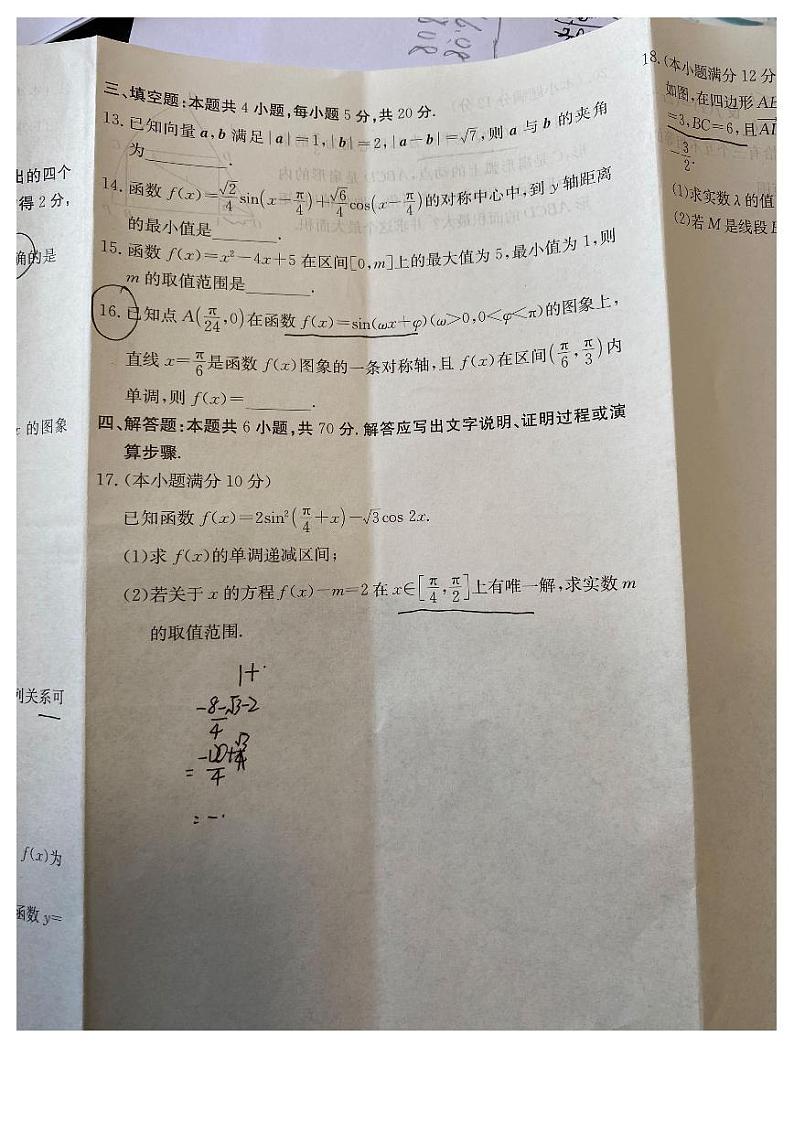 出的四个
得2分,
确的是
的图象
列关系可
f(x)为
函数 y=
三、填空题:本题共4小题,每小题5分,共20分.
13. 已知向量 a,b 满足|a|=1,|b|=2,|a-b|=√7,则 a 与 b 的夹角
为________.
14. 函数 f(x)=√2/4 sin(x-π/4)+√6/4 cos(x-π/4)的对称中心中,到 y 轴距离
的最小值是________.
15. 函数 f(x)=x²-4x+5在区间[0,m]上的最大值为5,最小值为1,则
m 的取值范围是________.
16. 已知点 A(π/24,0)在函数 f(x)=sin(ωx+φ)(ω>0,0<φ<π)的图象上,
直线 x=π/6是函数 f(x)图象的一条对称轴,且 f(x)在区间(π/6,π/3)内
单调,则 f(x)=________.
四、解答题:本题共6小题,共70分.解答应写出文字说明、证明过程或演
算步骤.
17. (本小题满分10分)
已知函数 f(x)=2sin²(π/4+x)-√3cos 2x.
(1)求 f(x)的单调递减区间;
(2)若关于 x 的方程 f(x)-m=2在 x∈[π/4,π/2]上有唯一解,求实数 m
的取值范围.
1+
-8-√3-2
4
=
4
= -
18. (本小题满分12分
如图,在四边形 AB
=3,BC=6,且
-3/2.
(1)求实数 λ 的值
(2)若 M 是线段